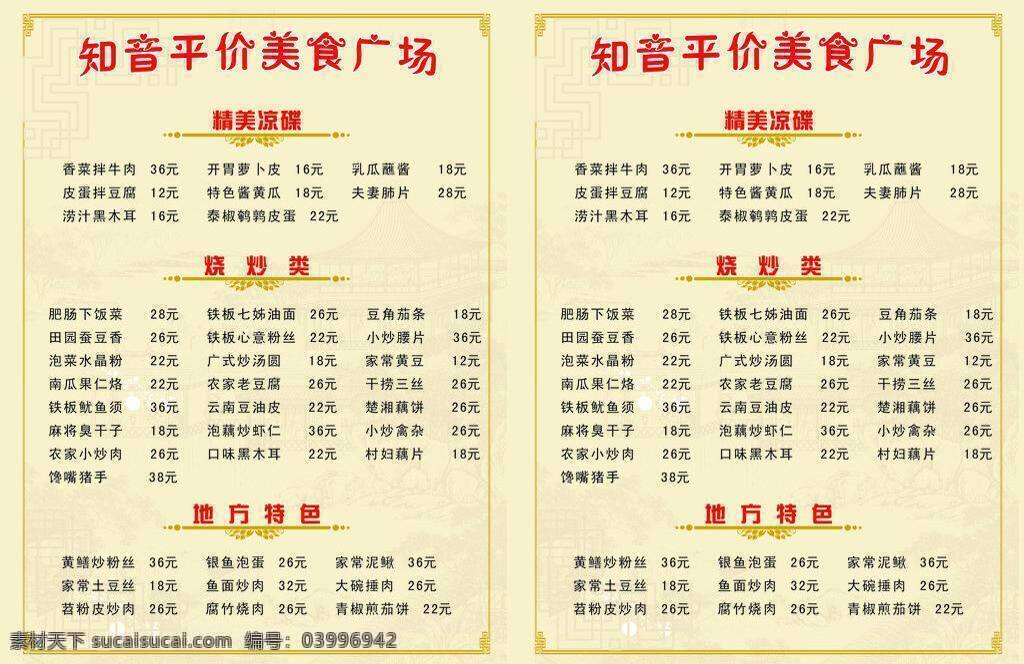 知音平价美食广场
精美凉碟
香菜拌牛肉 36元 开胃萝卜皮 16元 乳瓜蘸酱 18元
皮蛋拌豆腐 12元 特色酱黄瓜 18元 夫妻肺片 28元
涝汁黑木耳 16元 泰椒鹌鹑皮蛋 22元
烧炒类
肥肠下饭菜 28元 铁板七姊油面 26元 豆角茄条 18元
田园蚕豆香 26元 铁板心意粉丝 22元 小炒腰片 36元
泡菜水晶粉 22元 广式炒汤圆 18元 家常黄豆 12元
南瓜果仁烙 22元 农家老豆腐 26元 干捞三丝 26元
铁板鱿鱼须 36元 云南豆油皮 22元 楚湘藕饼 26元
麻将臭干子 18元 泡藕炒虾仁 36元 小炒禽杂 26元
农家小炒肉 26元 口味黑木耳 22元 村妇藕片 18元
馋嘴猪手 38元
地方特色
黄鳝炒粉丝 36元 银鱼泡蛋 26元 家常泥鳅 36元
家常土豆丝 18元 鱼面炒肉 32元 大碗捶肉 26元
苕粉皮炒肉 26元 腐竹烧肉 26元 青椒煎茄饼 22元
知音平价美食广场
精美凉碟
香菜拌牛肉 36元 开胃萝卜皮 16元 乳瓜蘸酱 18元
皮蛋拌豆腐 12元 特色酱黄瓜 18元 夫妻肺片 28元
涝汁黑木耳 16元 泰椒鹌鹑皮蛋 22元
烧炒类
肥肠下饭菜 28元 铁板七姊油面 26元 豆角茄条 18元
田园蚕豆香 26元 铁板心意粉丝 22元 小炒腰片 36元
泡菜水晶粉 22元 广式炒汤圆 18元 家常黄豆 12元
南瓜果仁烙 22元 农家老豆腐 26元 干捞三丝 26元
铁板鱿鱼须 36元 云南豆油皮 22元 楚湘藕饼 26元
麻将臭干子 18元 泡藕炒虾仁 36元 小炒禽杂 26元
农家小炒肉 26元 口味黑木耳 22元 村妇藕片 18元
馋嘴猪手 38元
地方特色
黄鳝炒粉丝 36元 银鱼泡蛋 26元 家常泥鳅 36元
家常土豆丝 18元 鱼面炒肉 32元 大碗捶肉 26元
苕粉皮炒肉 26元 腐竹烧肉 26元 青椒煎茄饼 22元
素材天下 sucaisucai.com 编号：03996942